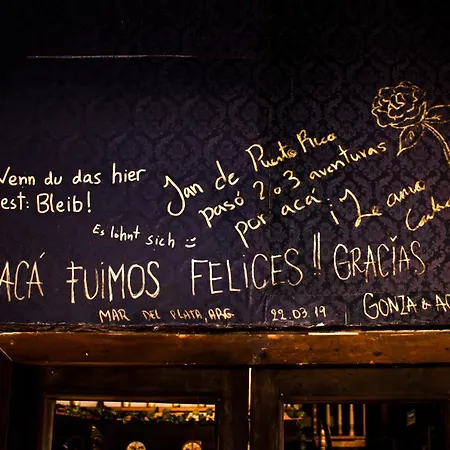 Wenn du das hier
lest: Bleib!
Es lohnt sich
Jan de Puerto Rico
pasó 2 o 3 aventuras
por acá ¡Le amo
ACÁ FUIMOS FELICES!! GRACIAS
MAR DEL PLATA, ARG. 22.03.19 GONZA &